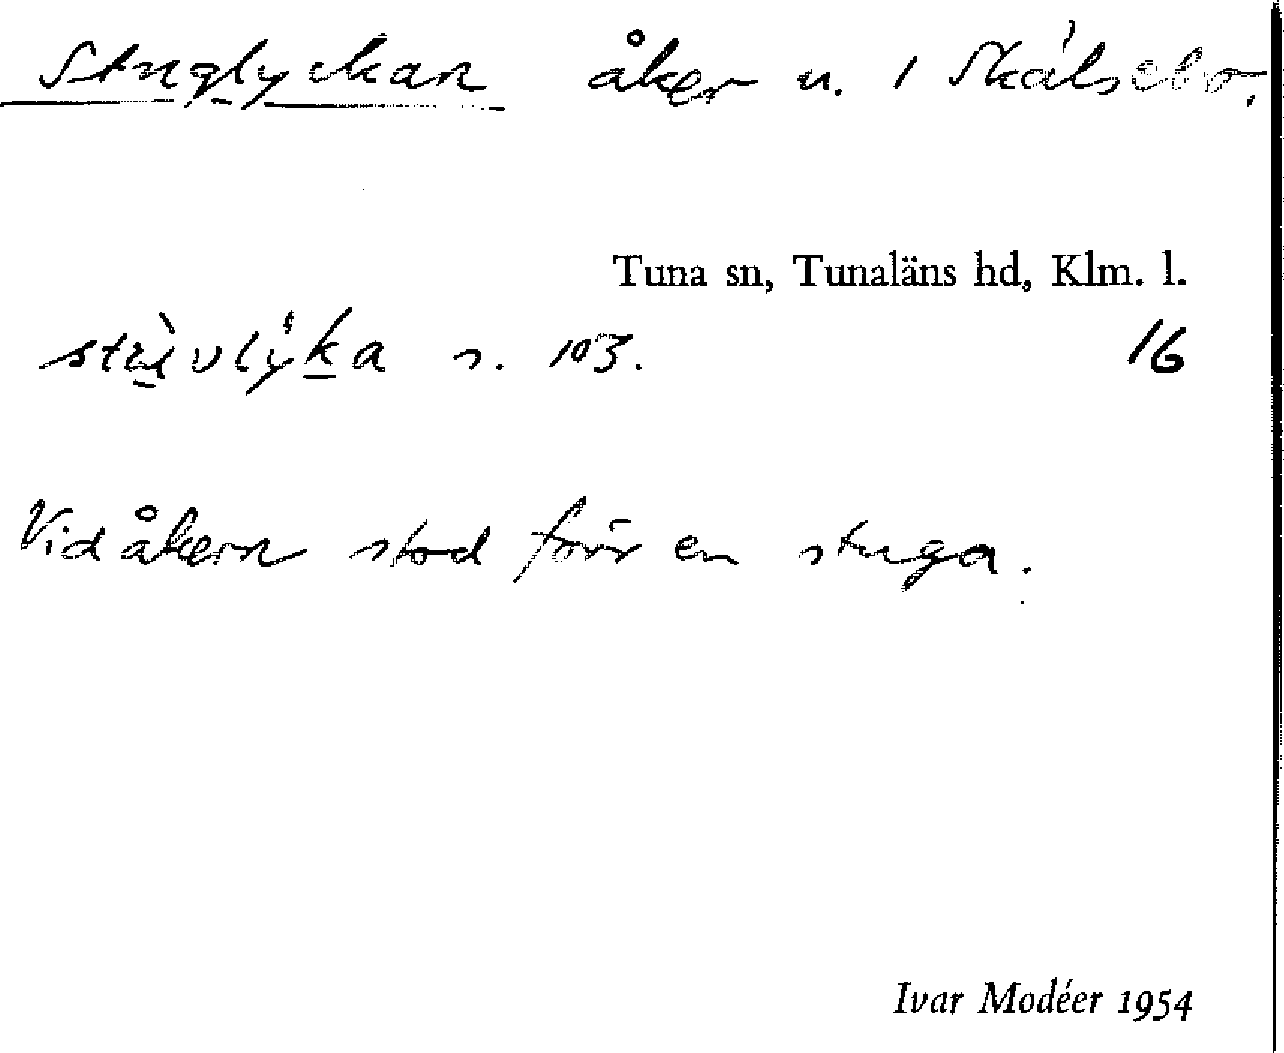 Stuglyckan åker u. 1 Skálsebo.
Tuna sn, Tunaläns hd, Klm. l.
s. 103. 16
Vid åkern stod förr en stuga.
Ivar Modéer 1954